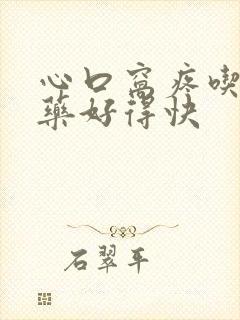 心口窝疼喫
藥好得快
石翠平